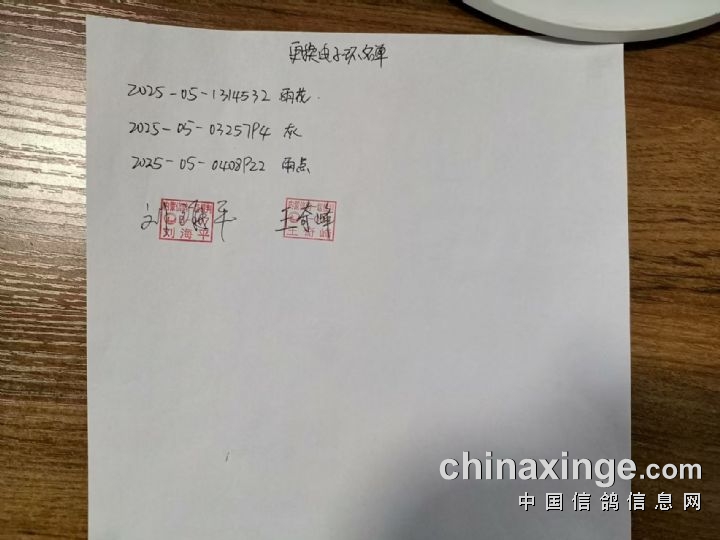 更换电子环名单
2025-05-1314532 雨花.
2025-05-0325794 灰
2025-05-0408922 雨点
刘海平 王奇峰
刘海平 王奇峰
chinaxinge.com
中国信鸽信息网